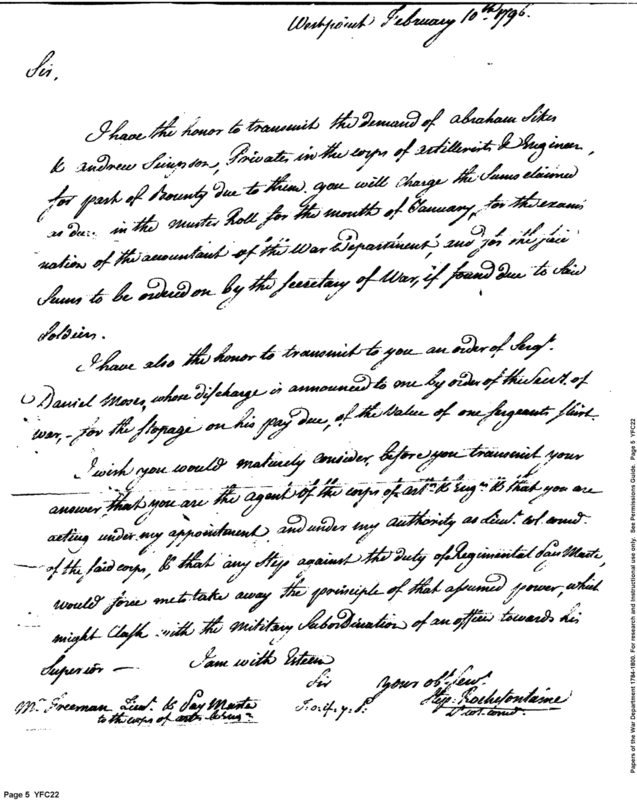 Westpoint February 10th 1796.
Sir,
I have the honor to transmit the demand of abraham Sikes
& andrew Simpson, Privates in the corps of artillerists & Engineer,
for part of Bounty due to them. you will charge the Sums claimed
as due in the Muster Roll for the month of January, for the exami
nation of the accountant of the War Department, and for the said
Sums to be ordered on by the Secretary of War, if found due to Said
Soldiers.
I have also the honor to transmit to you an order of Sergt.
Daniel Moses, whose discharge is announced to me by order of the Secrt. of
war, - for the stopage on his pay due, of the Value of one Sergeants shirt.
I wish you would maturely consider, before you transmit your
answer, that you are the agent of the corps of artrs. & Engrs. & that you are
acting under my appointment and under my authority as Lieut. col. comd.
of the said corps, & that any Step against the duty of Regimental Pay Master,
would force me to take away the principle of that assumed power, which
might Clash with the Military Subordination of an officer towards his
Superior — I am with Esteem
Sir your obt. Servt.
Mr. Freeman Lieut. & Pay Master Step. Rochefontaine
to the corps of artrs. & Eng. Lt. col. comdt.
Page 5 YFC22
Papers of the War Department 1784-1800. For research and instructional use only. See Permissions Guide. Page 5 YFC22